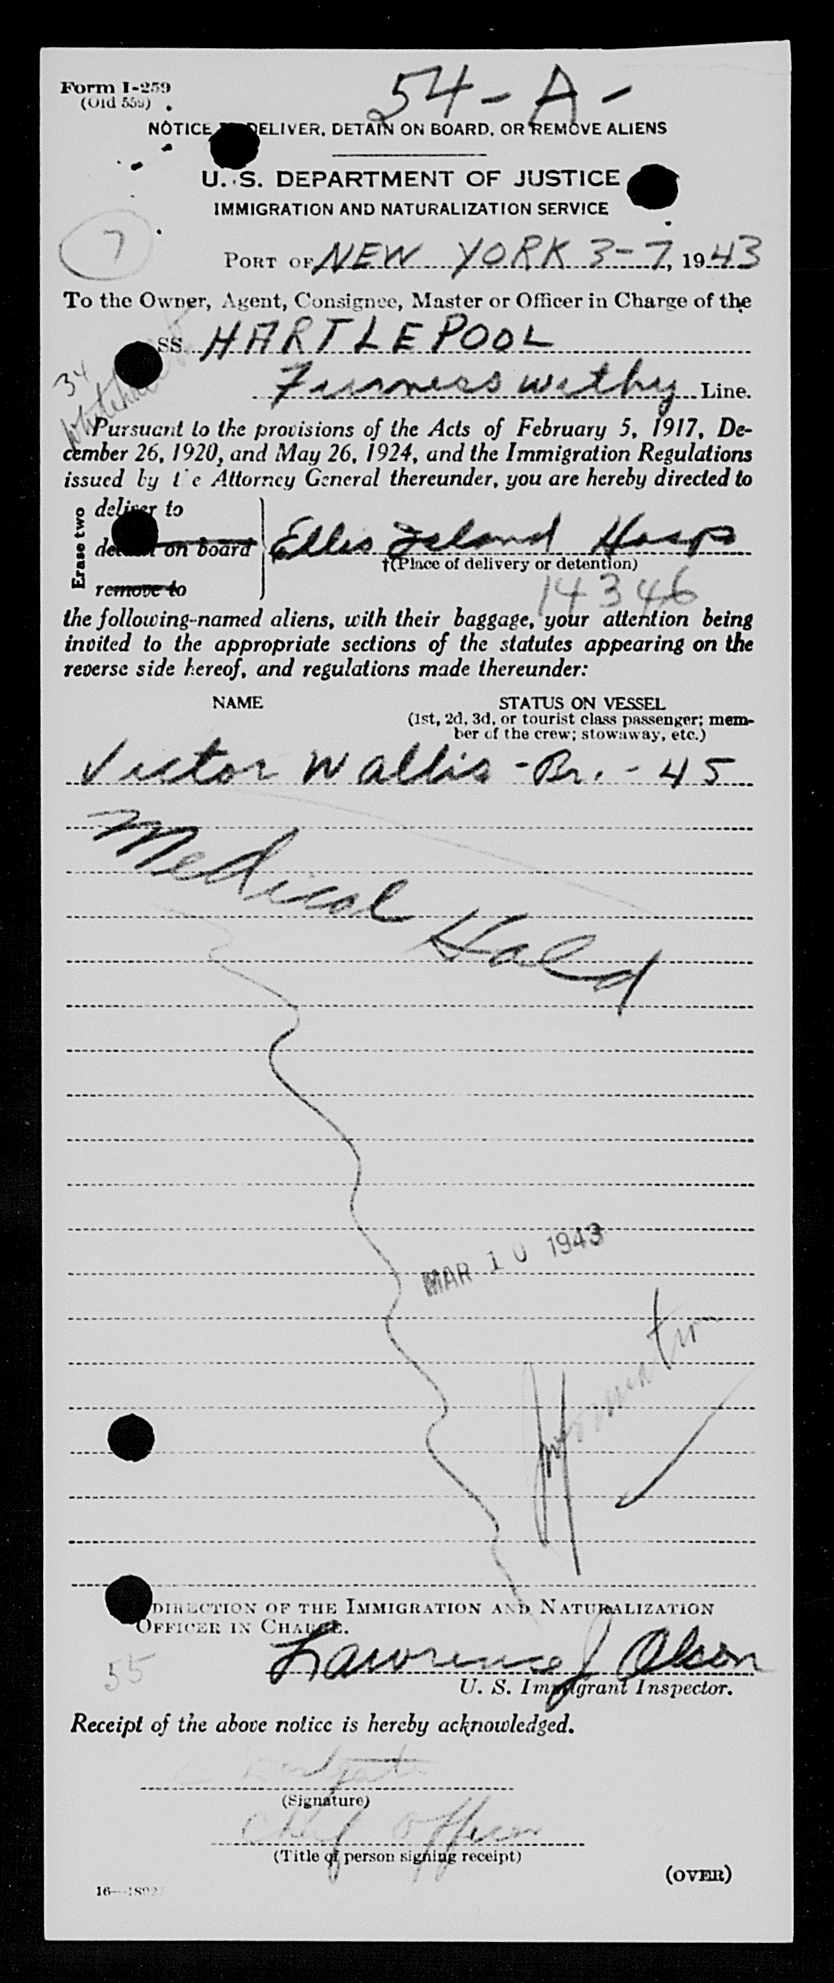 Form I-259
(Old 559)
54-A-
NOTICE TO DELIVER, DETAIN ON BOARD, OR REMOVE ALIENS
U. S. DEPARTMENT OF JUSTICE
IMMIGRATION AND NATURALIZATION SERVICE
7
PORT OF NEW YORK 3-7, 1943
To the Owner, Agent, Consignee, Master or Officer in Charge of the
SS. HARTLEPOOL
34
Furness Withy Line.
Pursuant to the provisions of the Acts of February 5, 1917, De-
cember 26, 1920, and May 26, 1924, and the Immigration Regulations
issued by the Attorney General thereunder, you are hereby directed to
Erase two
deliver to
detain on board
remove to
Ellis Island Hosp
†(Place of delivery or detention)
14346
the following-named aliens, with their baggage, your attention being
invited to the appropriate sections of the statutes appearing on the
reverse side hereof, and regulations made thereunder:
NAME STATUS ON VESSEL
(1st, 2d, 3d, or tourist class passenger; mem-
ber of the crew; stowaway, etc.)
Victor Wallis - Br. - 45
Medical Hald
MAR 10 1943
Information
DIRECTION OF THE IMMIGRATION AND NATURALIZATION
OFFICER IN CHARGE.
55
Lawrence J Olson
U. S. Immigrant Inspector.
Receipt of the above notice is hereby acknowledged.
(Signature)
Chief Officer
(Title of person signing receipt)
(OVER)